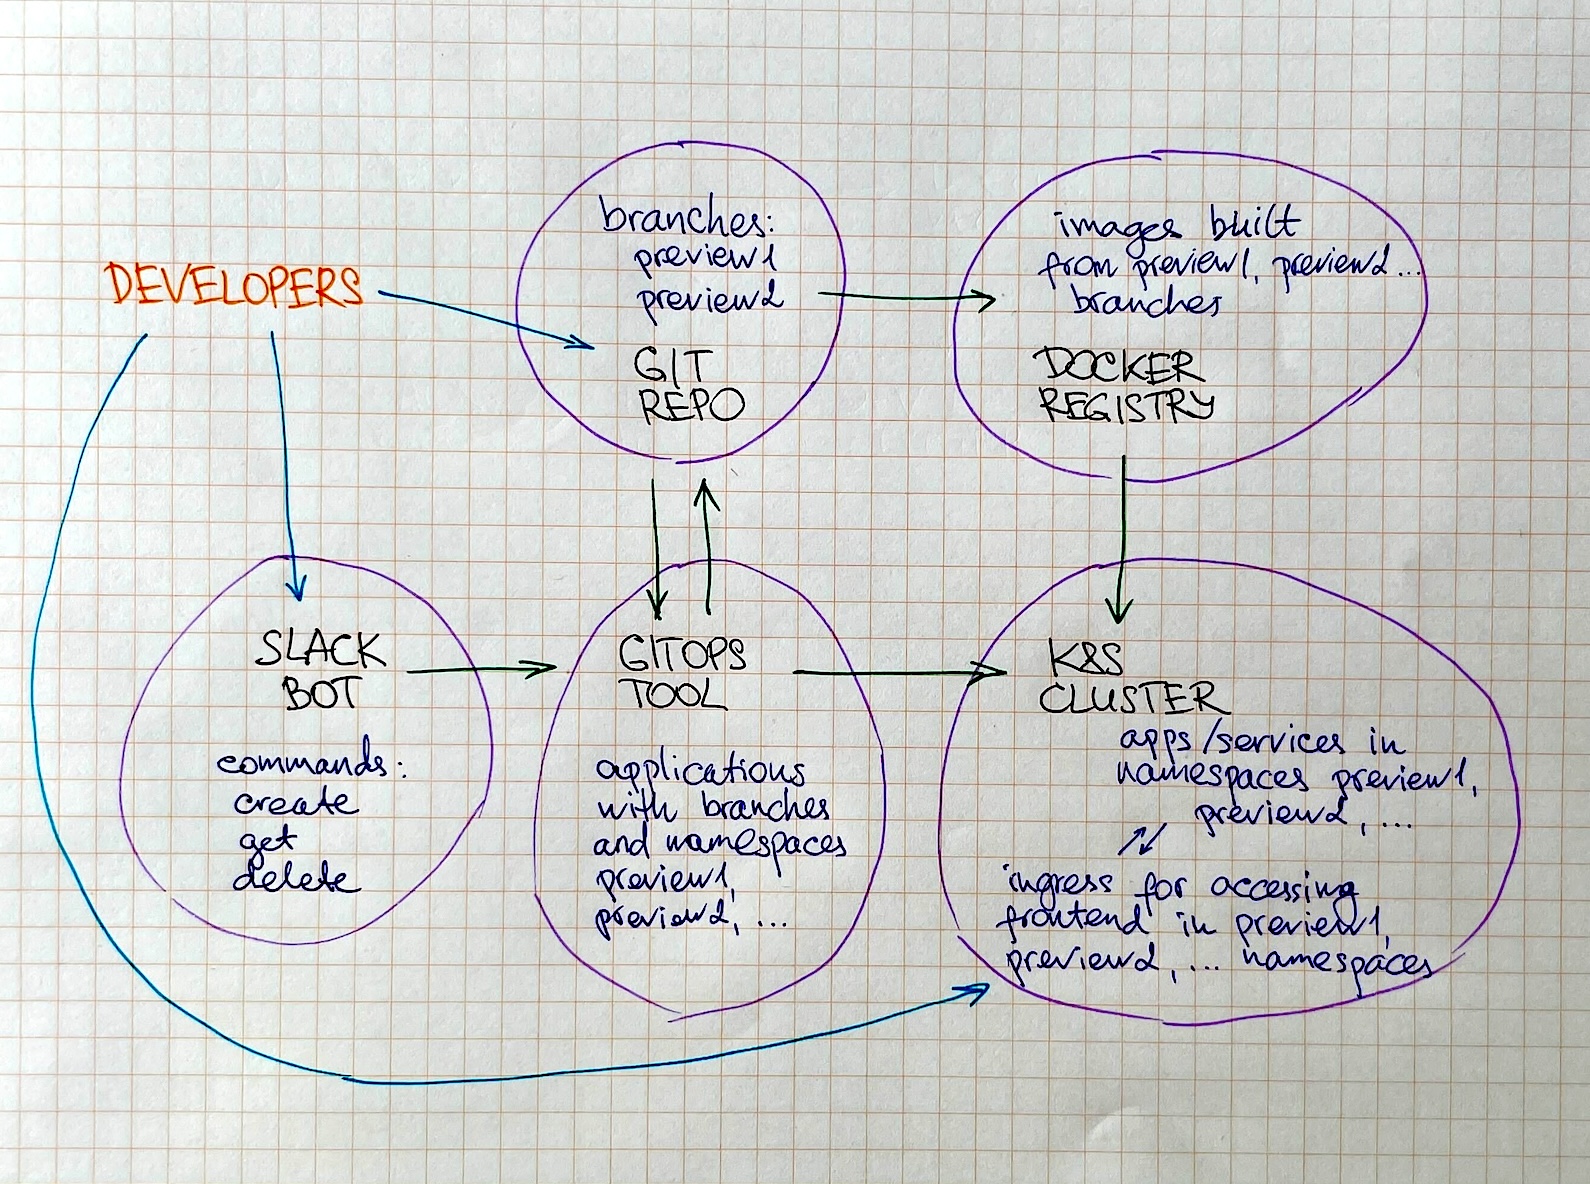 DEVELOPERS
branches:
preview1
preview2
GIT
REPO
images built
from preview1, preview2...
branches
DOCKER
REGISTRY
SLACK
BOT
commands:
create
get
delete
GITOPS
TOOL
applications
with branches
and namespaces
preview1,
preview2, ...
K8S
CLUSTER
apps/services in
namespaces preview1,
preview2, ...
ingress for accessing
frontend in preview1,
preview2, ... namespaces